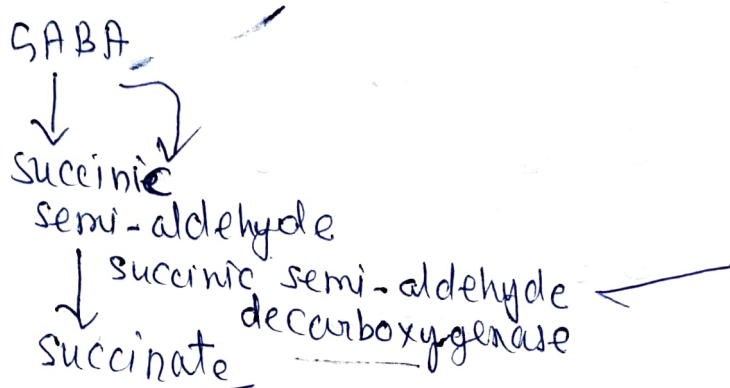 GABA
succinic
semi-aldehyde
succinic semi-aldehyde
decarboxygenase
succinate